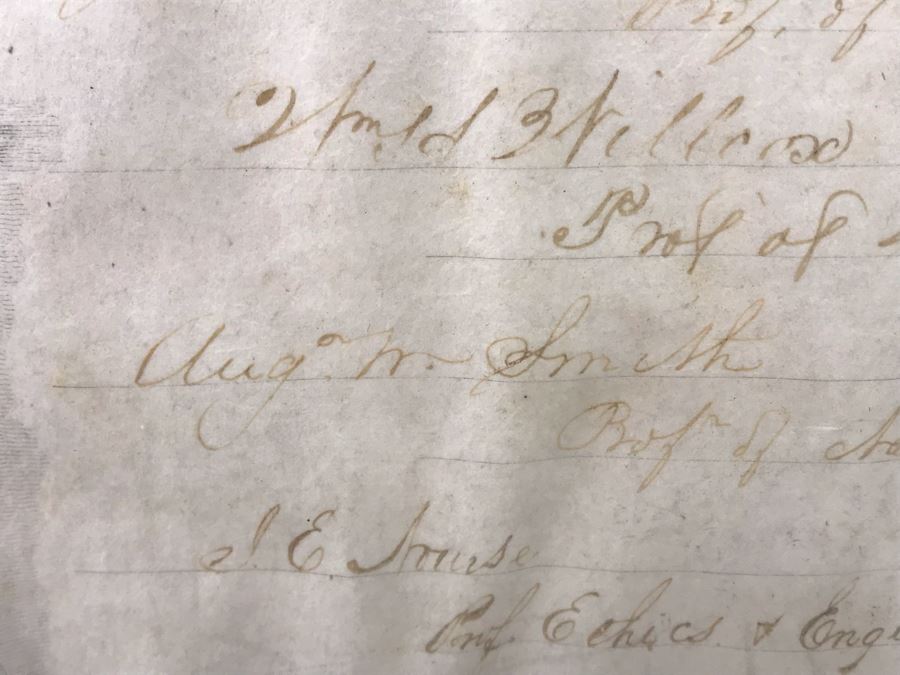 Prof. of
Wm. H. Willcox
Prof of
Augs. W. Smith
Profr of
J. E. Nourse
Prof. Ethics & Eng